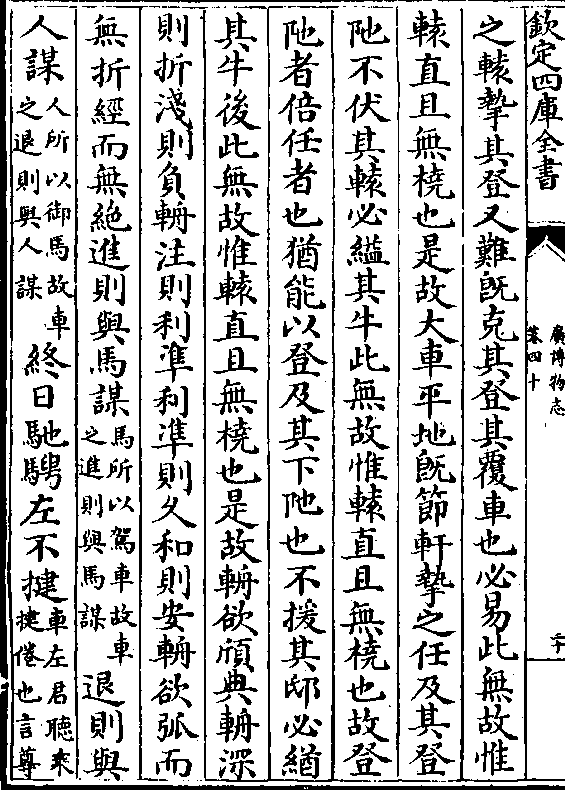 欽定四庫全書
廣博物志
卷四十
二十
之轅摯其登又難既克其登其覆車也必易此無故惟
轅直且無橈也是故大車平地既節軒摯之任及其登
阤不伏其轅必縊其牛此無故惟轅直且無橈也故登
阤者倍任者也猶能以登及其下阤也不援其邸必緧
其牛後此無故惟轅直且無橈也是故輈欲頎典輈深
則折淺則負輈注則利凖利凖則久和則安輈欲弧而
無折經而無絶進則與馬謀馬所以駕車故車之進則與馬謀退則與
人謀人所以御馬故車之退則與人謀終日馳騁左不揵車左君聽乗揵倦也言尊